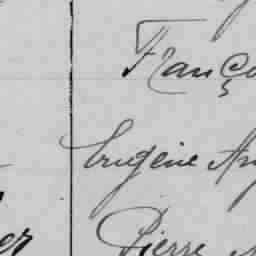 Franço
Eugène An
Pierre
er